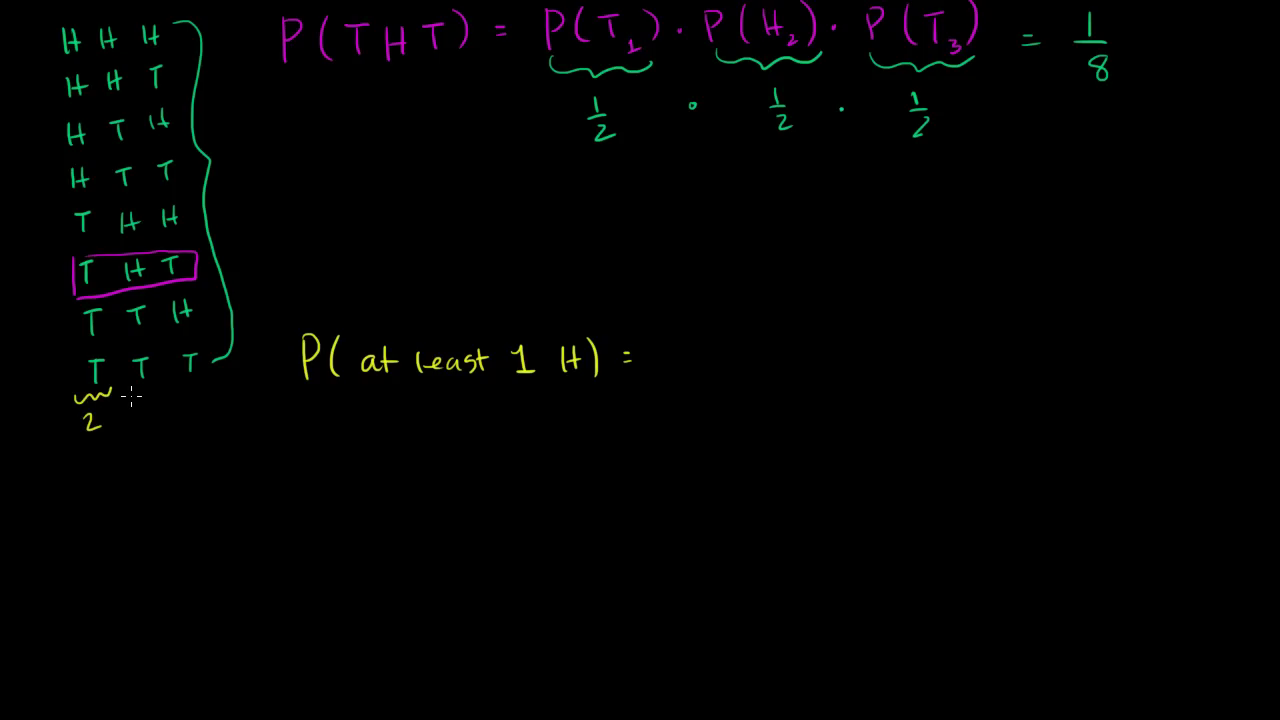 H H H
H H T
H T H
H T T
T H H
T H T
T T H
T T T
2
P(THT) = P(T₁) · P(H₂) · P(T₃) = 1/8
1/2 · 1/2 · 1/2
P(at least 1 H) =